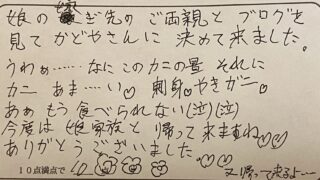 娘の嫁ぎ先のご両親とブログを
見てかどやさんに決めて来ました。
うわぁ……なにこのカニの量 それに
カニ あま……い♡ 刺身♡やきガニ♡
あぁもう食べられない(泣)(泣)
今度は娘家族と帰って来ますね♡♡
ありがとうございました。♡♡
10点満点で 10
又帰って来るよ…